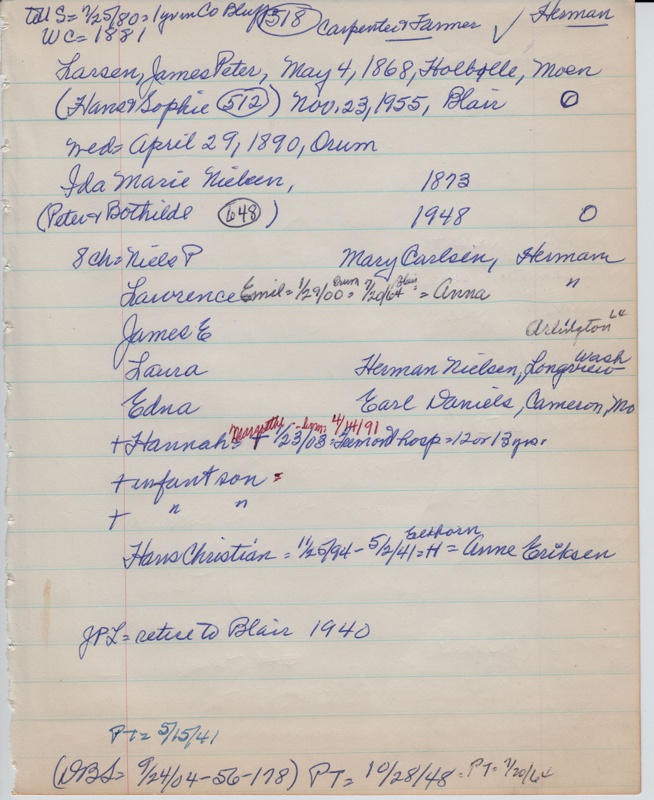 US = 7/25/80 = 1 yr in Co Bluff (518) Carpenter & Farmer ✓ Herman
WC = 1881
Larsen, James Peter, May 4, 1868, Holbølle, Moen
(Hans & Sophie (512)) Nov. 23, 1955, Blair O
Wed = April 29, 1890, Orum
Ida Marie Nielsen, 1873
(Peter & Bothilde (648)) 1948 O
8 ch = Niels P Mary Carlsen, Herman
Lawrence Emil = 1/29/00 = Orum 7/20/64 = Blair = Anna "
James E Arlington
Laura Herman Nielsen, Longview Wash
Edna Earl Daniels, Cameron, Mo
+ Hannah = + 1/23/03 = Fremont hosp = 12 or 13 yrs. 4/14/91
+ infant son =
+ " "
Hans Christian = 11/25/94 - 5/2/41 = H = Anne Eriksen
Elkhorn
JPL = retire to Blair 1940
PT = 5/15/41
(DBS = 9/24/04-56-178) PT = 10/28/48 = PT = 7/20/64